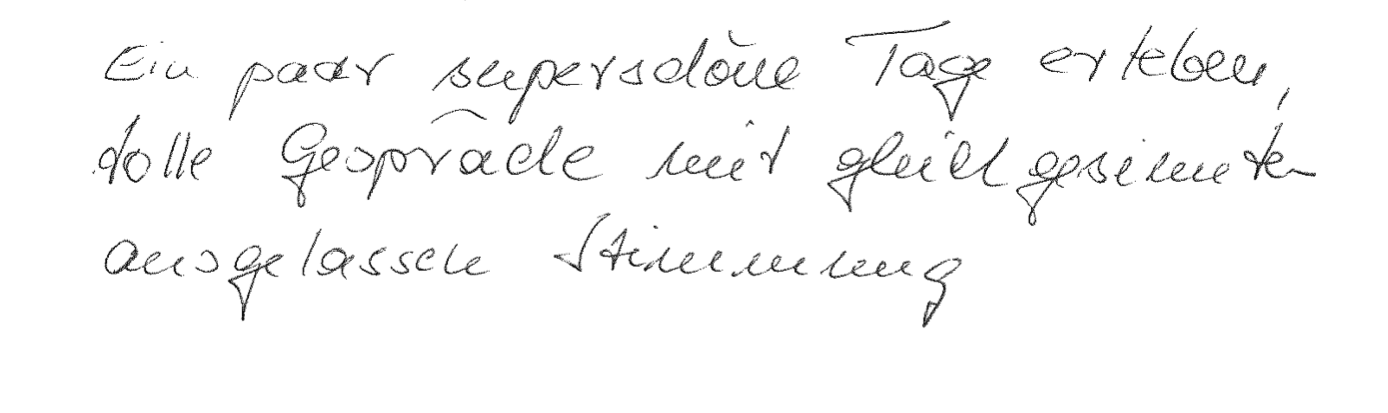 Ein paar superschöne Tage erleben,
tolle Gespräche mit gleichgesinnten
ausgelassen Stimmung